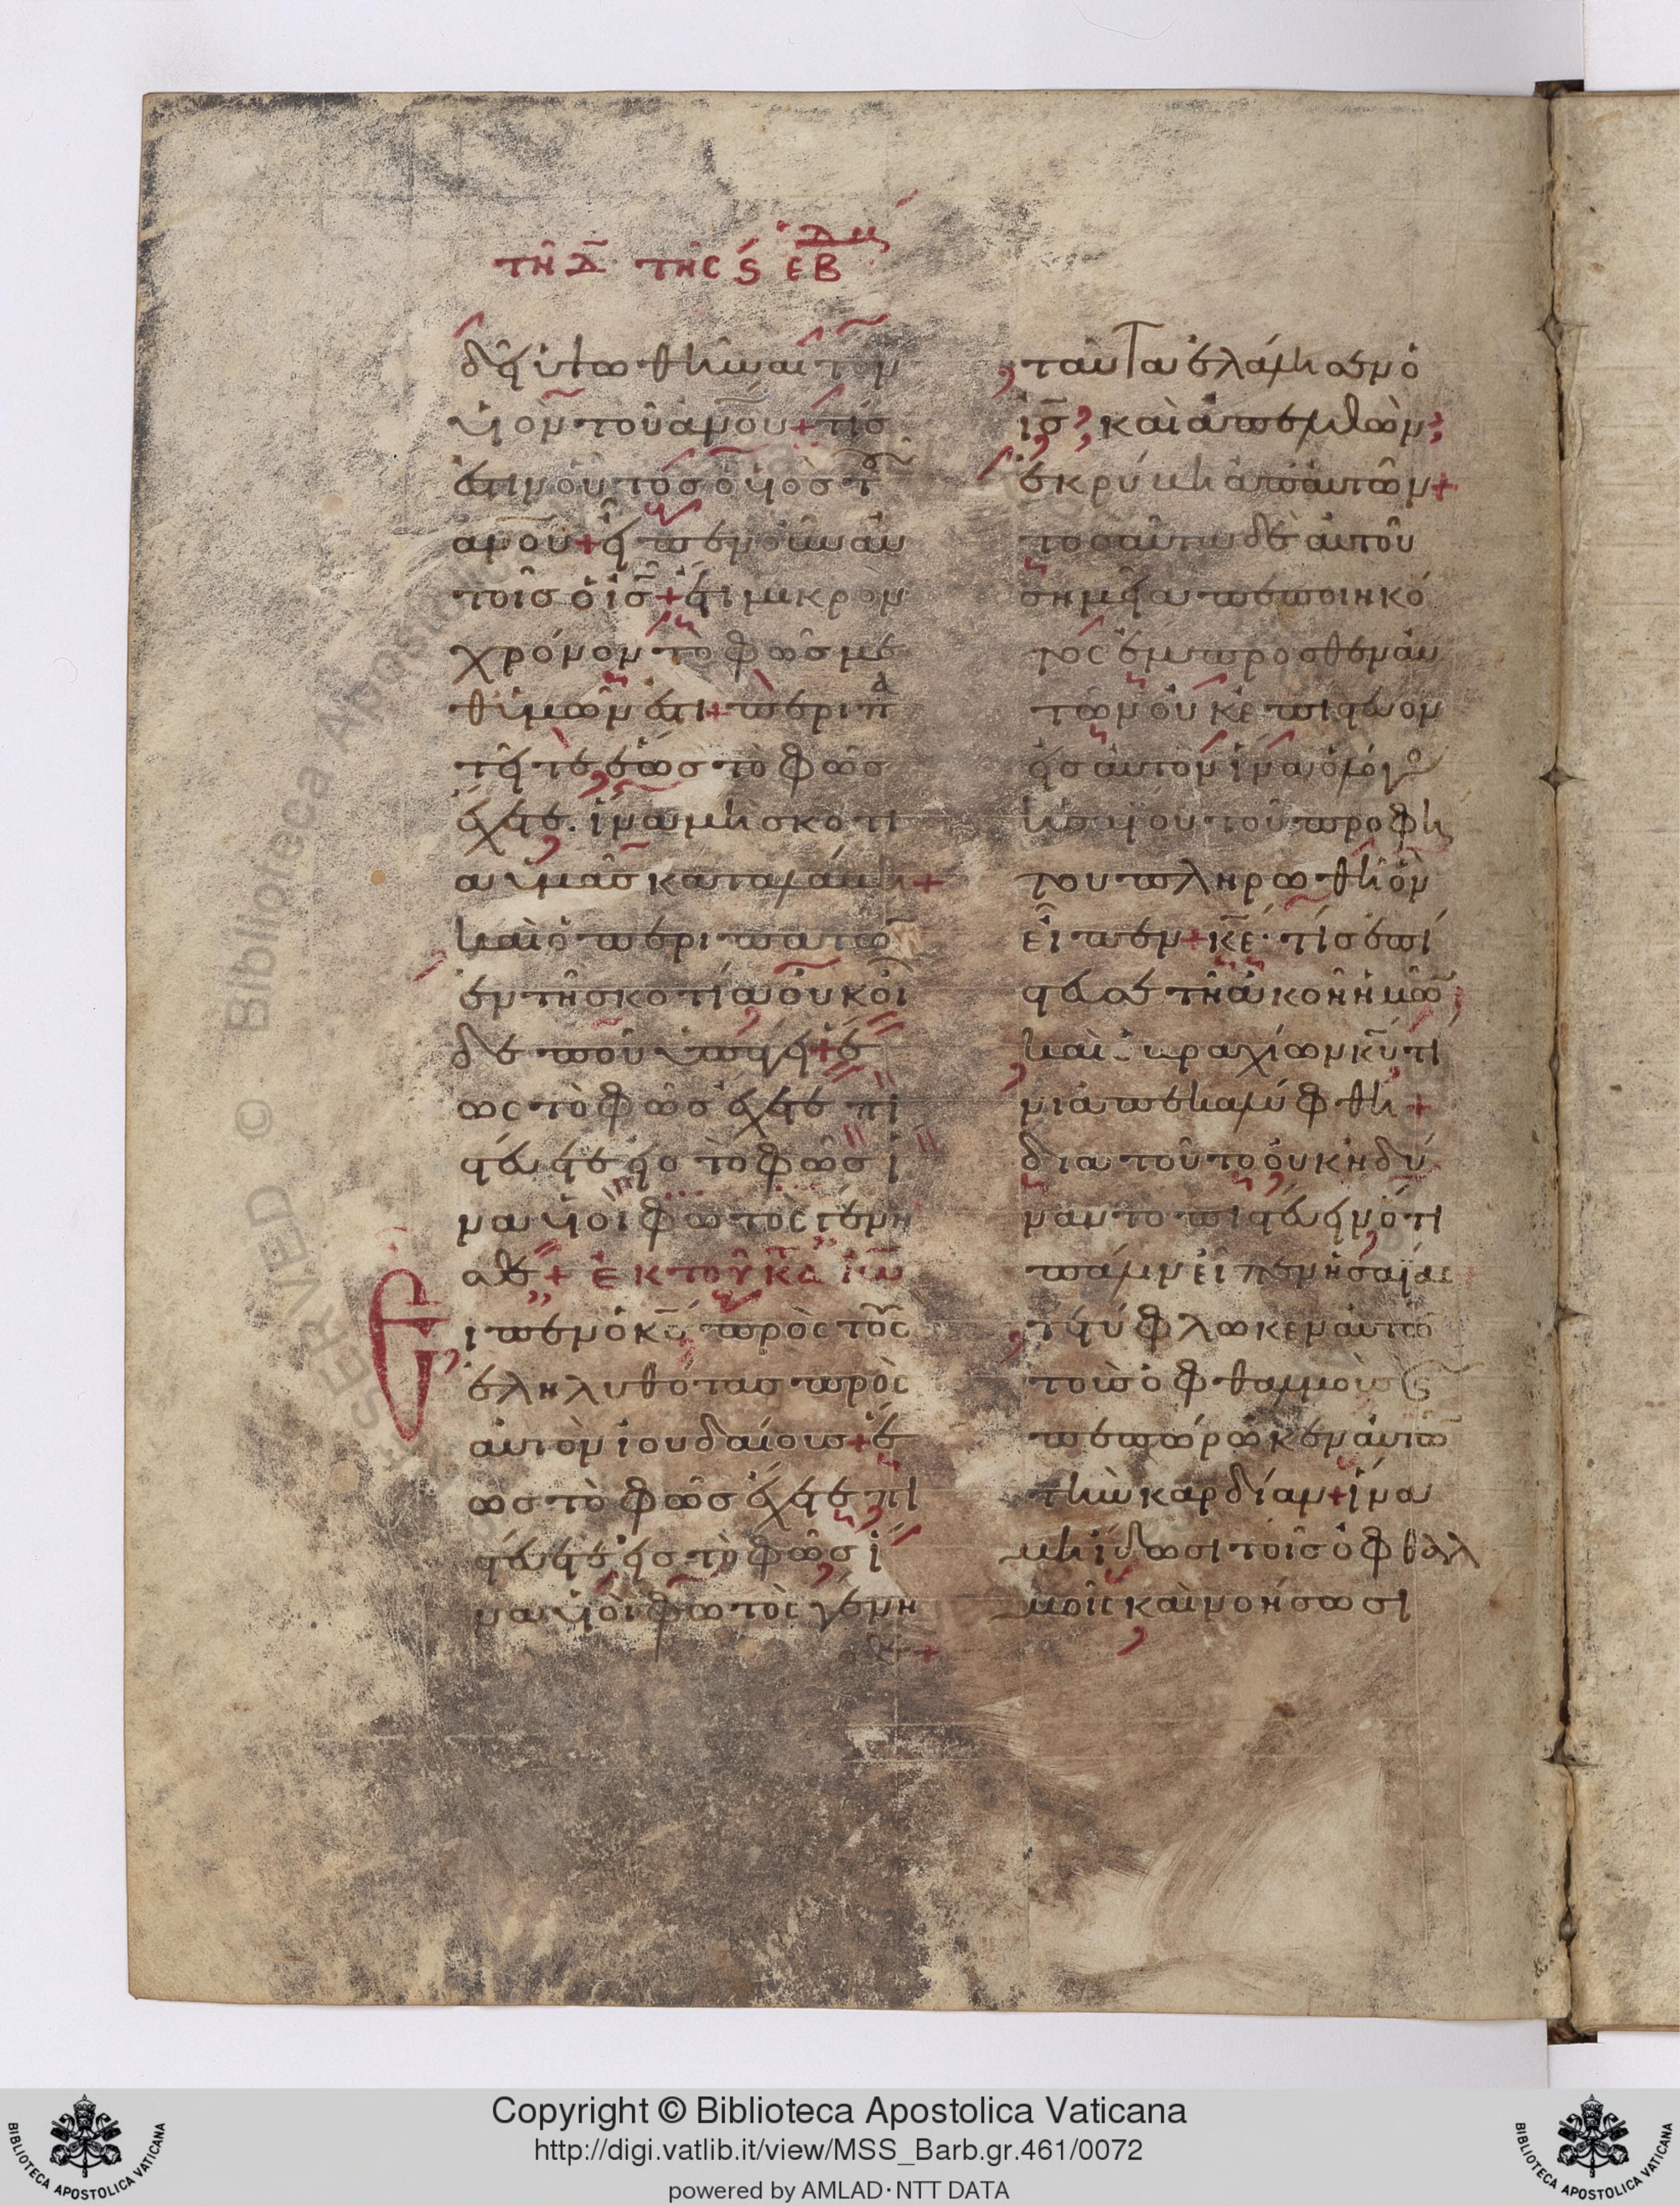 τῆ δ̄ τῆς ς ἑβδμ
δεῖ ὑψωθῆναι τὸν
υἱὸν τοῦ ἀνου + τίς
ἐστιν οὗτος ὁ υἱὸς τοῦ
ἀνου + εἶπεν οὖν αὐ
τοῖς ὁ ις + ἔτι μικρὸν
χρόνον τὸ φῶς με
θ' ὑμῶν ἐστι + περιπα
τεῖτε ἕως τὸ φῶς
ἔχετε. ἵνα μὴ σκοτί
α ὑμᾶς καταλάβη +
καὶ ὁ περιπατῶν
ἐν τῆ σκοτία οὐκ οἶ
δε ποῦ ὑπάγει + ἕ
ως τὸ φῶς ἔχετε πι
στεύετε εἰς τὸ φῶς ἵ
να υἱοὶ φωτὸς γένη
σθε + ἐκ τοῦ κατὰ ιω
Εἶπεν ὁ κς πρὸς τοὺς
ἐληλυθότας πρὸς
αὐτὸν ἰουδαίους + ἕ
ως τὸ φῶς ἔχετε πι
στεύετε εἰς τὸ φῶς ἵ
να υἱοὶ φωτὸς γένη
σθε +
ταῦτα ἐλάλησεν ὁ
ις, καὶ ἀπελθὼν,
ἐκρύβη ἀπ' αὐτῶν +
τοσαῦτα δὲ αὐτοῦ
σημεῖα πεποιηκό
τος ἔμπροσθεν αὐ
τῶν οὐκ ἐπίστευον
εἰς αὐτὸν ἵνα ὁ λόγος
ἡσαΐου τοῦ προφή
του πληρωθῆ ὃν
εἶπεν + κε. τίς ἐπί
στευσε τῆ ἀκοῆ ἡμῶν,
καὶ ὁ βραχίων κυ τί
νι ἀπεκαλύφθη +
διὰ τοῦτο οὐκ ἠδύ
ναντο πιστεύειν ὅτι
πάλιν εἶπεν ἡσαΐας
τετύφλωκεν αὐτῶν
τοὺς ὀφθαλμοὺς καὶ
πεπώρωκεν αὐτῶν
τὴν καρδίαν + ἵνα
μὴ ἴδωσι τοῖς ὀφθαλ
μοῖς καὶ νοήσωσι
Copyright © Biblioteca Apostolica Vaticana
http://digi.vatlib.it/view/MSS_Barb.gr.461/0072
powered by AMLAD·NTT DATA